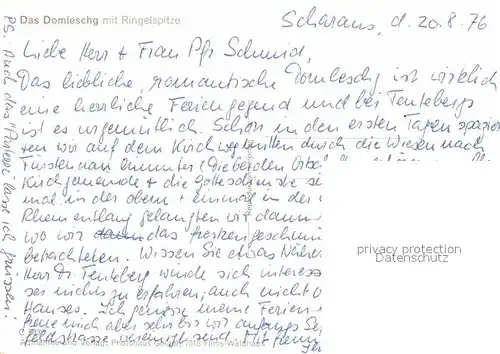 Das Domleschg mit Ringelspitze
Scharans, d. 20.8.76
Liebe Herr + Frau Pfr Schmid,
Das liebliche, romantische Domleschg ist wirklich
eine herrliche Feriengegend und bei Teutebergs
ist es urgemütlich. Schon in den ersten Tagen spazier
ten wir auf dem Kirchweg mitten durch die Wiesen nach
Fürstenau hinunter (Die beiden
Kirchgemeinde + die Gottesdienste
mal in der obern + einmal in der
Rhein entlang gelangten wir dann
wo wir das
betrachteten. Wissen Sie etwas Näher
Herr Dr. Teuteberg würde sich interess
nichts zu erfahren; auch nicht
Hauses. Ich geniesse meine Ferien
freue mich aber sehr bis wir anfangs Se
feldstrasse vereint sind. Mit
P.S. Auch das lasse ich grüssen.
privacy protection
Datenschutz